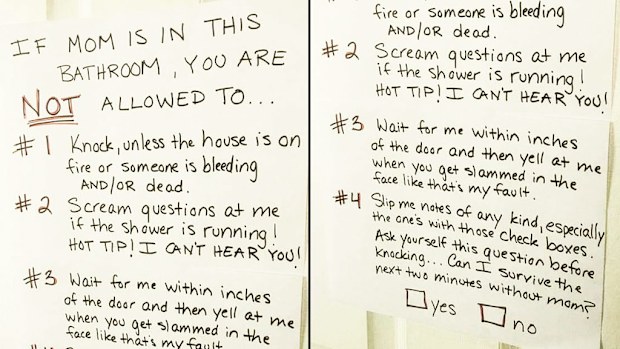 IF MOM IS IN THIS
BATHROOM, YOU ARE
NOT ALLOWED TO...
#1 Knock, unless the house is on
fire or someone is bleeding
AND/OR dead.
#2 Scream questions at me
if the shower is running!
HOT TIP! I CAN'T HEAR YOU!
#3 Wait for me within inches
of the door and then yell at me
when you get slammed in the
face like that's my fault.
fire or someone is bleeding
AND/OR dead.
#2 Scream questions at me
if the shower is running!
HOT TIP! I CAN'T HEAR YOU!
#3 Wait for me within inches
of the door and then yell at me
when you get slammed in the
face like that's my fault.
#4 Slip me notes of any kind, especially
the one's with those check boxes.
Ask yourself this question before
knocking... Can I survive the
next two minutes without mom?
yes no